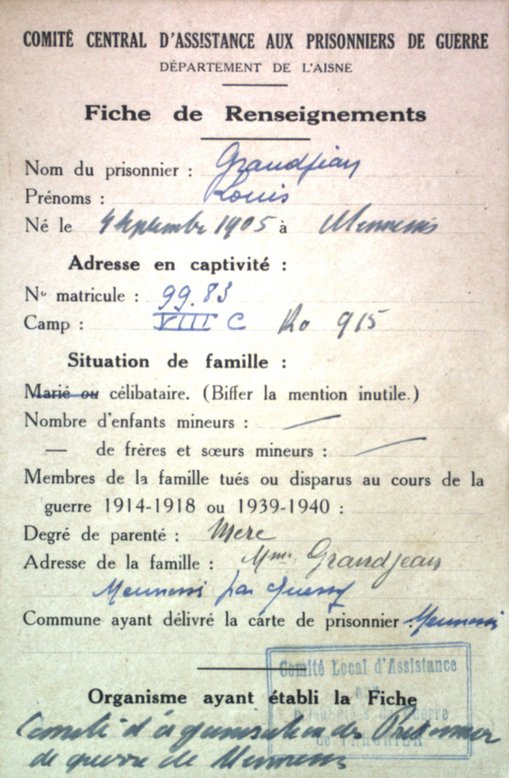 COMITÉ CENTRAL D'ASSISTANCE AUX PRISONNIERS DE GUERRE
DÉPARTEMENT DE L'AISNE
Fiche de Renseignements
Nom du prisonnier : Grandjean
Prénoms : Louis
Né le 4 Septembre 1905 à Mennessis
Adresse en captivité :
No matricule : 99.83
Camp : VIII C Ko 915
Situation de famille :
Marié ou célibataire. (Biffer la mention inutile.)
Nombre d'enfants mineurs : —
— de frères et sœurs mineurs : —
Membres de la famille tués ou disparus au cours de la
guerre 1914-1918 ou 1939-1940 :
Degré de parenté : Mere
Adresse de la famille : Mme Grandjean
par Quessy
Commune ayant délivré la carte de prisonnier :
Comité Local d'Assistance
aux
Prisonniers de Guerre
de TERGNIER
Organisme ayant établi la Fiche
Comité d'organisation des Prisonnier
de guerre de Mennessis